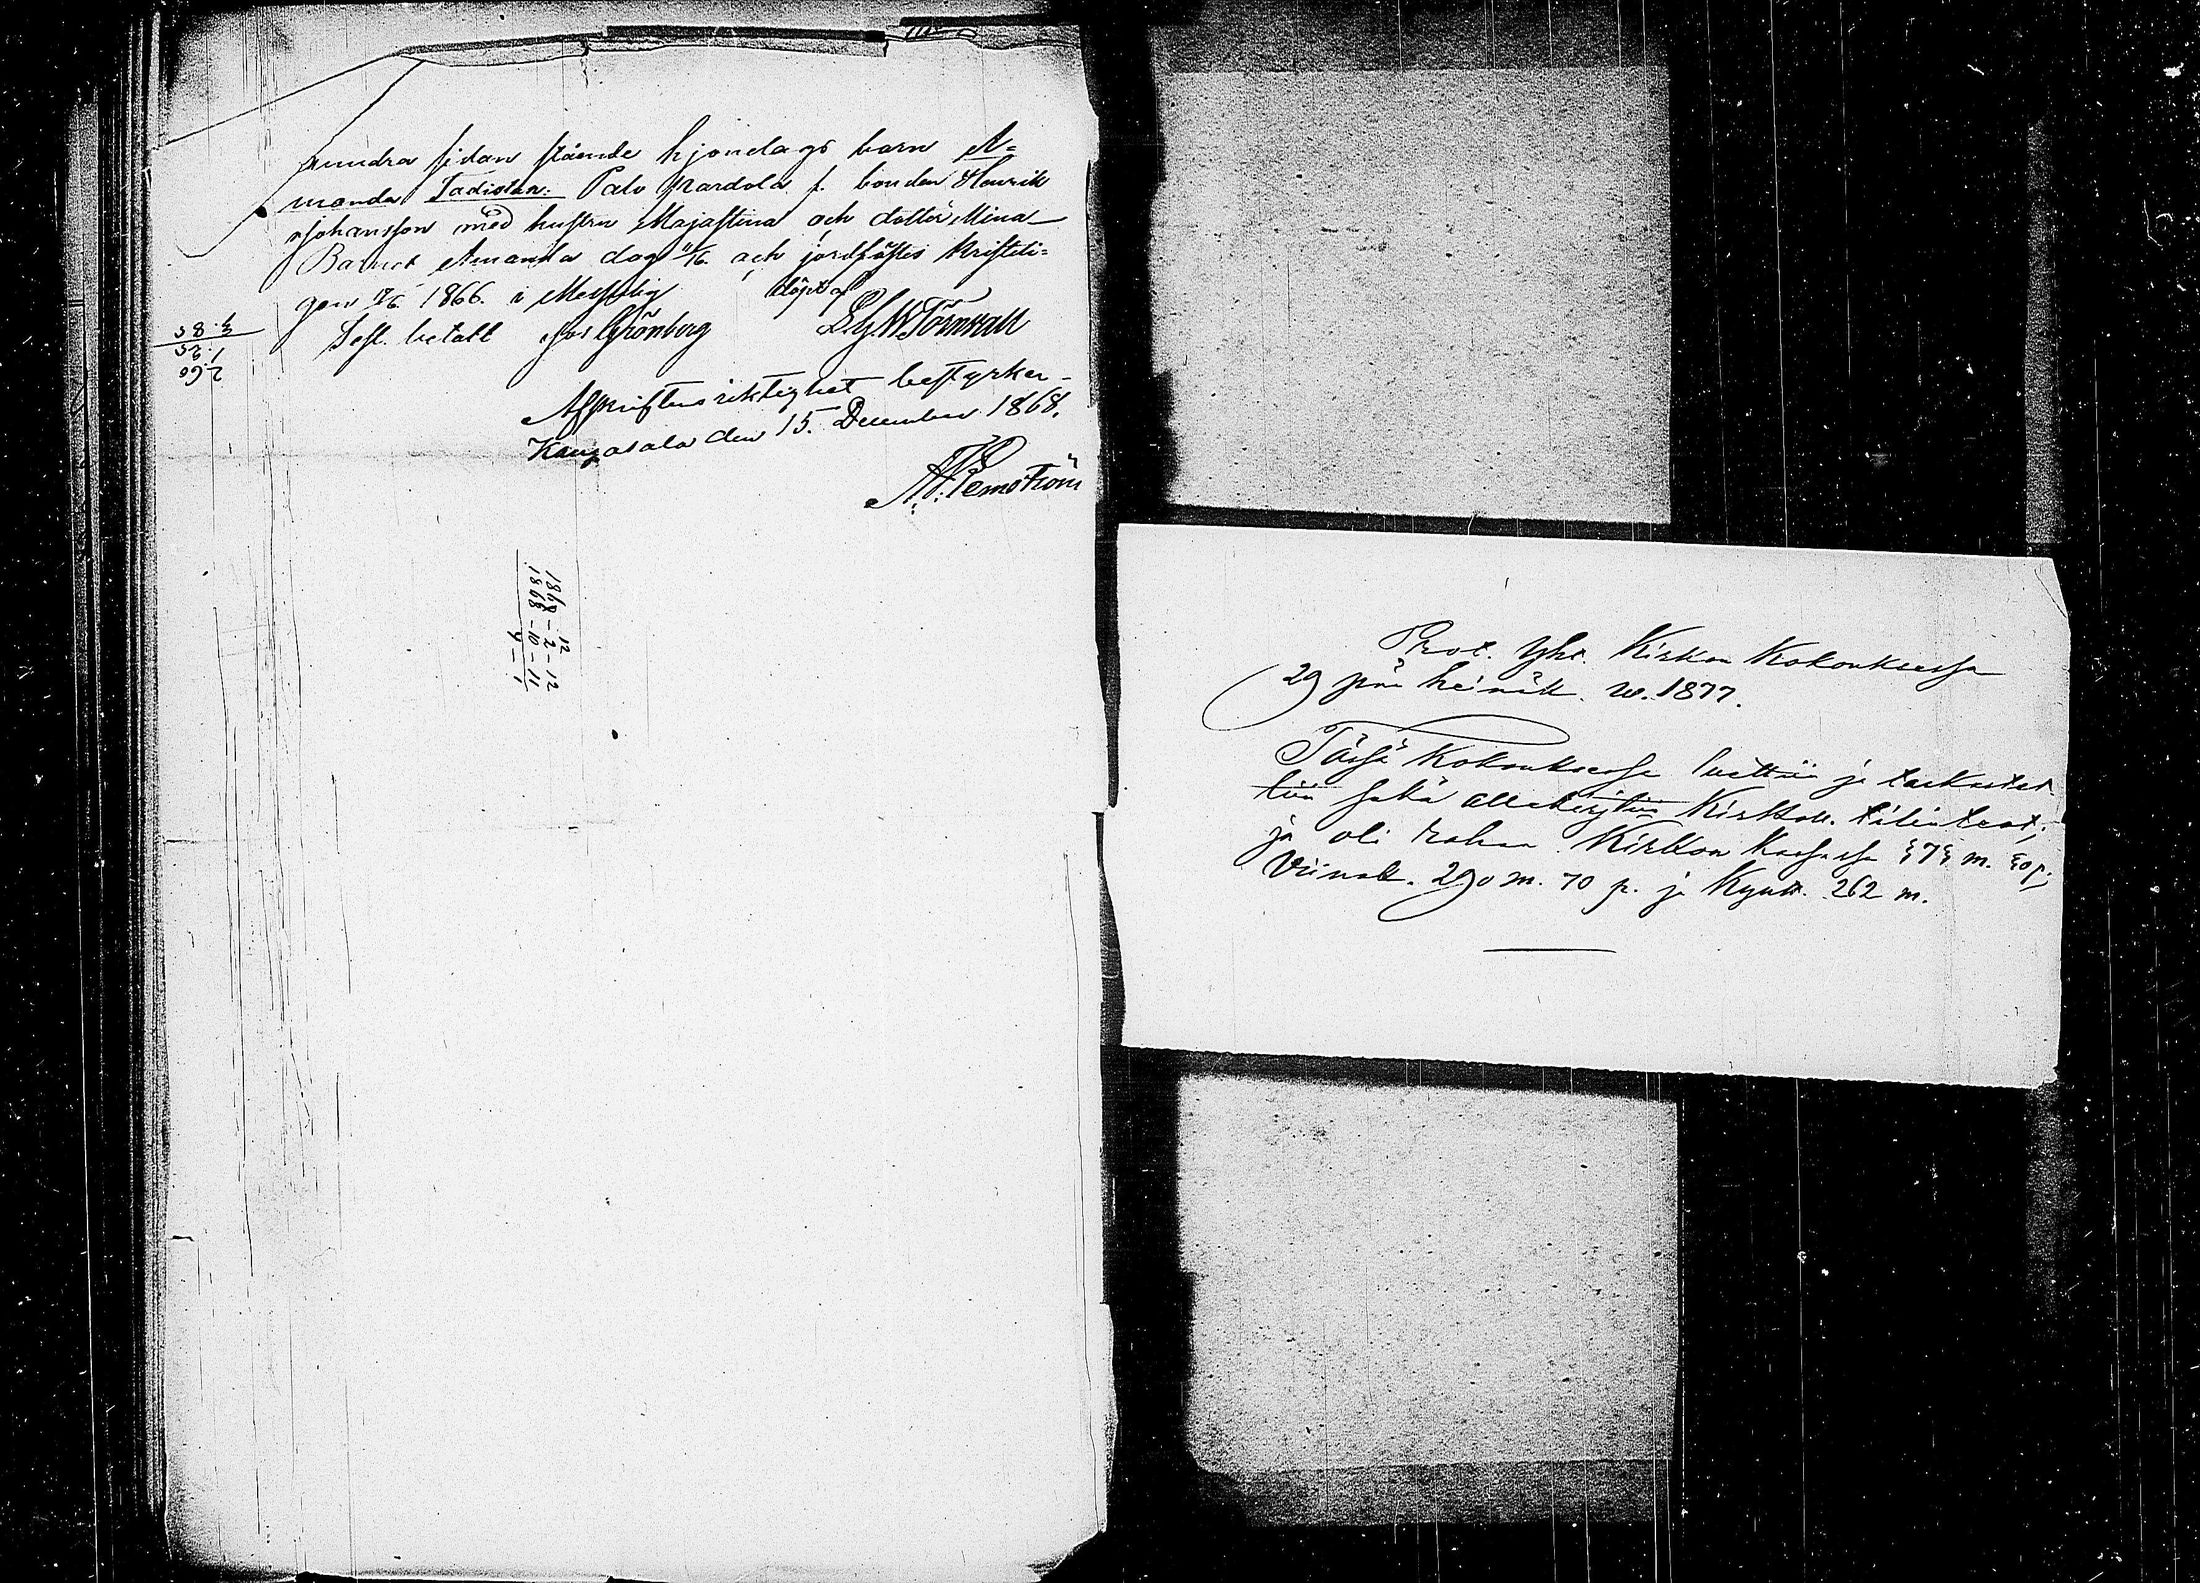 andra sidan stående hjonelags barn A=
manda Tadistar: Palo Kardola f. bonden Henrik
Johansson med hustru Majastina och dotter Mina
Barnet Amanda dog 11/6. och jordfästes kristeli=
gen 17/6 1866. i Messuby döpt af
Test. betalt Jos Grönberg G. W. Törnwall
Afskriftens riktighet bestyrker
Kangasala den 15. December 1868.
12
1868-2-12
1868-10-11
4-1
Prot. Yht. Kirkon Kokouksessa
29 p:nä heinäk. w. 1877.
Tässä Kokouksessa luettiin ja tarkastet
tiin sekä allekirjtiin Kirkkok. tilintext;
ja oli rahaa Kirkkon Kassassa 575 m. 50 p;
Viinak. 290 m. 70 p. ja Kyntt. 262 m.